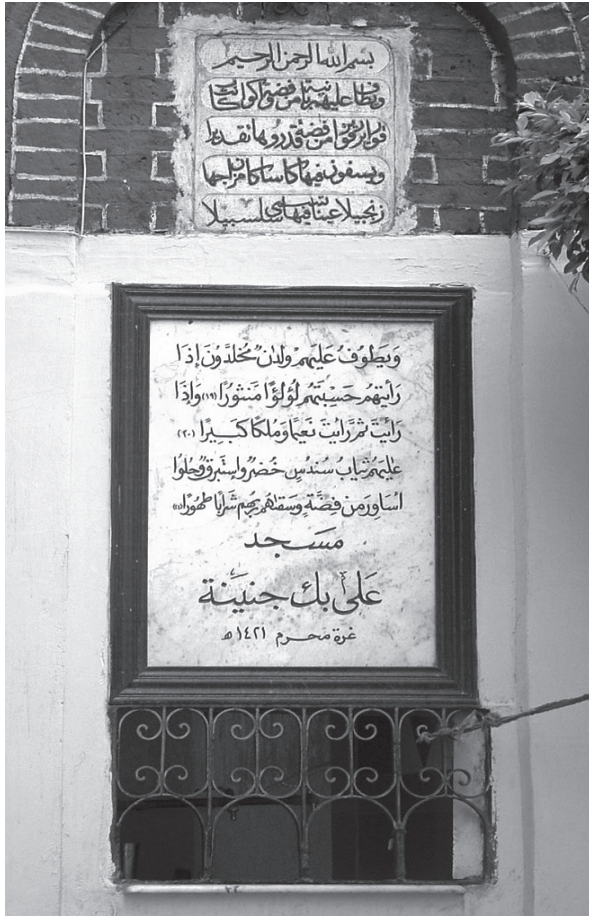 بسم الله الرحمن الرحيم
ويطاف عليهم بآنية من فضة وأكواب كانت
قواريرا قوارير من فضة قدروها تقديرا
ويسقون فيها كأسا كان مزاجها
زنجبيلا عينا فيها تسمى سلسبيلا
وَيَطُوفُ عَلَيْهِمْ وِلْدَانٌ مُخَلَّدُونَ إِذَا
رَأَيْتَهُمْ حَسِبْتَهُمْ لُؤْلُؤًا مَنْثُورًا (١٩) وَإِذَا
رَأَيْتَ ثَمَّ رَأَيْتَ نَعِيمًا وَمُلْكًا كَبِيرًا (٢٠)
عَلِيَهُمْ ثِيَابُ سُندُسٍ خُضْرٌ وَإِسْتَبْرَقٌ وَحُلُّوا
أَسَاوِرَ مِنْ فِضَّةٍ وَسَقَاهُمْ رَبُّهُمْ شَرَابًا طَهُورًا (٢١)
مَسْجد
عَلى بك جنينَة
غرة محرم ١٤٢١ هـ